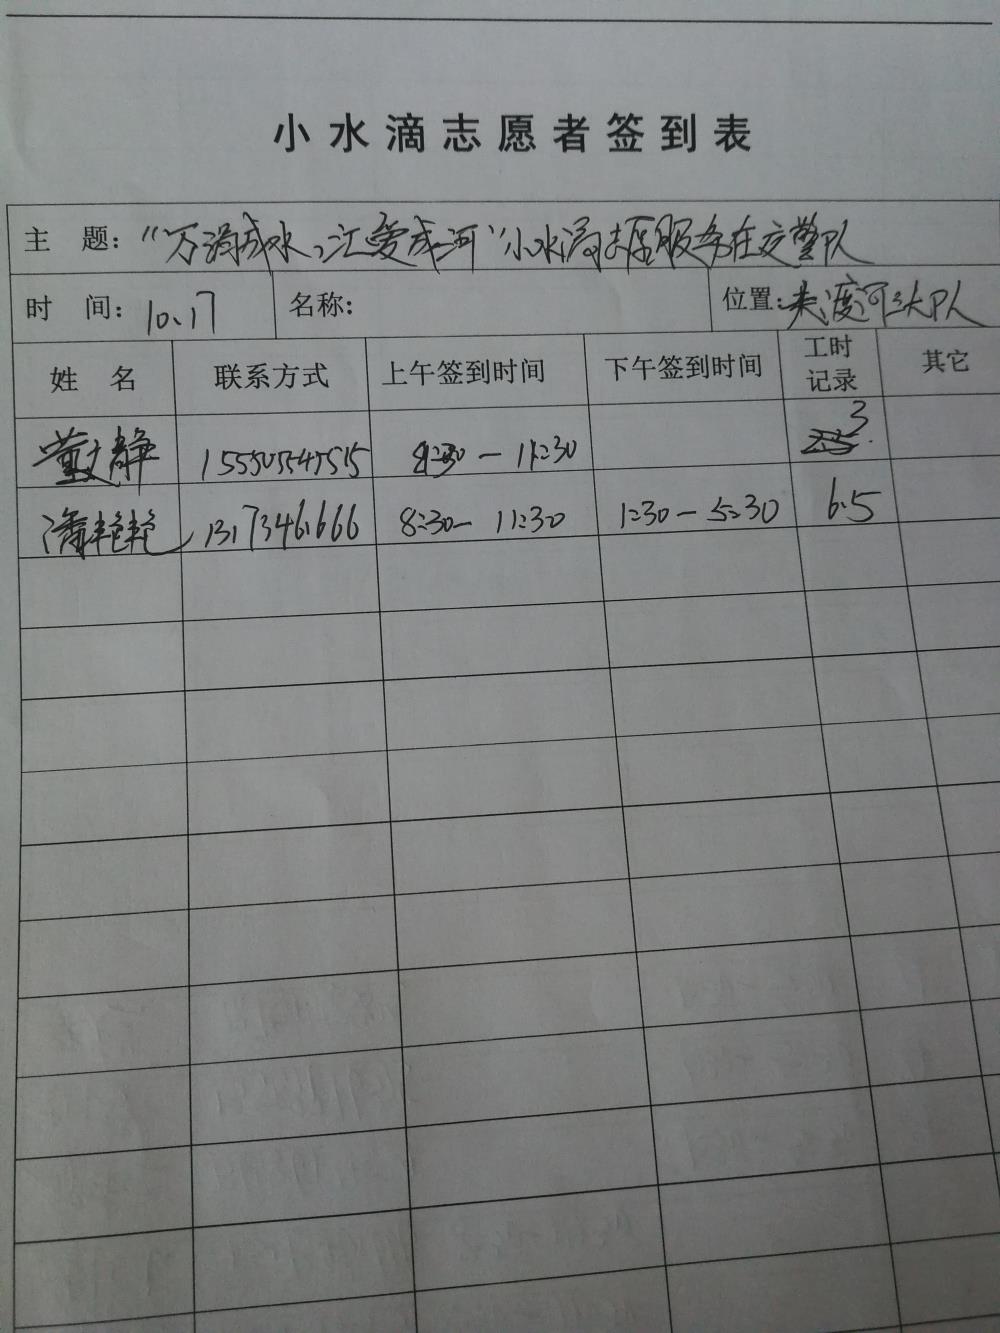 小水滴志愿者签到表
主 题: “万滴成水，汇爱成河”小水滴志愿服务在交警队
时 间: 10.17 名称: 位置: 夹渡河三大队
姓 名 联系方式 上午签到时间 下午签到时间 工时记录 其它
董文静 15550554755 8:30 — 11:30 3
潘艳艳 13173461666 8:30 — 11:30 1:30 — 5:30 6.5